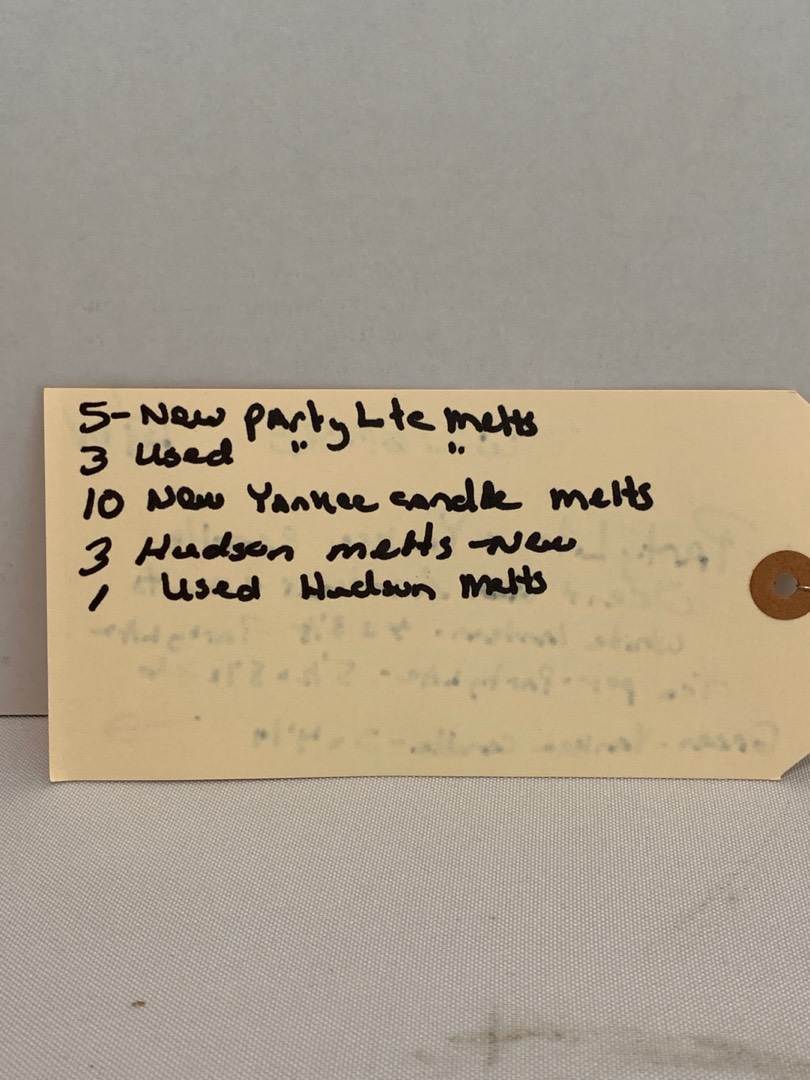 5- New PartyLite melts
3 Used " "
10 New Yankee candle melts
3 Hudson melts - New
1 Used Hudson Melts